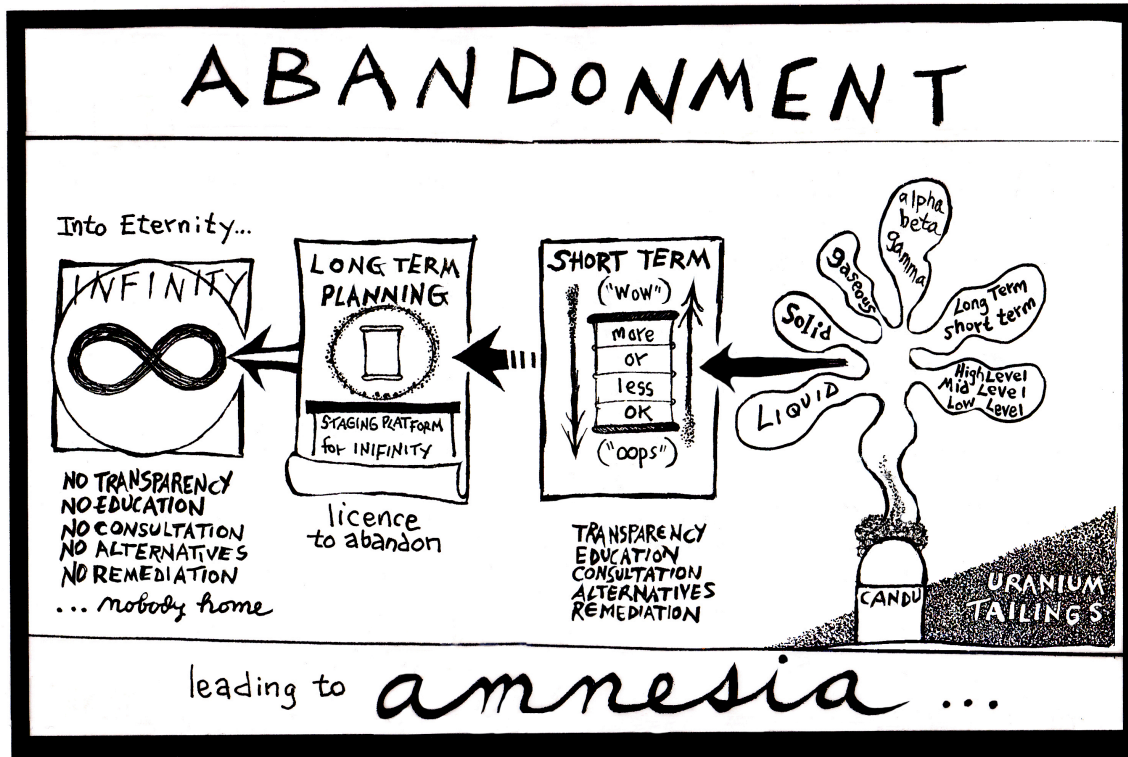 ABANDONMENT
Into Eternity...
INFINITY
NO TRANSPARENCY
NO EDUCATION
NO CONSULTATION
NO ALTERNATIVES
NO REMEDIATION
... nobody home
LONG TERM
PLANNING
STAGING PLATFORM
for INIFINITY
licence
to abandon
SHORT TERM
("WOW")
more
or
less
OK
("oops")
TRANSPARENCY
EDUCATION
CONSULTATION
ALTERNATIVES
REMEDIATION
alpha
beta
gamma
gaseous
Solid
LIQUID
Long Term
short term
High Level
Mid Level
Low Level
CANDU
URANIUM
TAILINGS
leading to amnesia ...